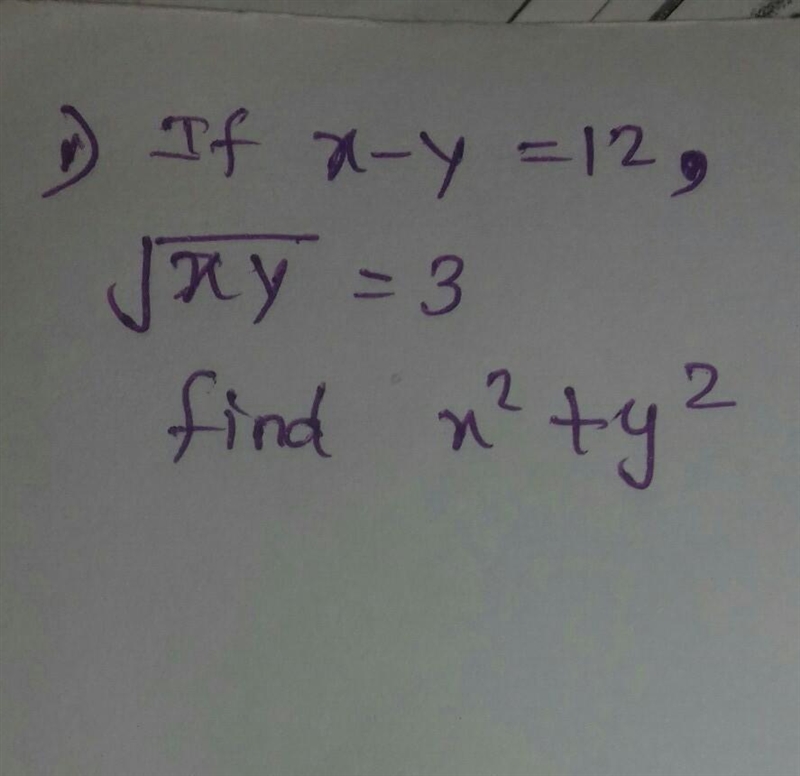 1) If x-y =12,
√xy = 3
find x² +y²